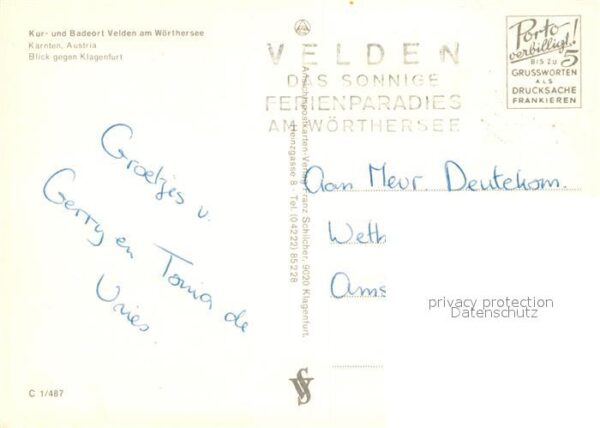 Kur- und Badeort Velden am Wörthersee
Kärnten, Austria
Blick gegen Klagenfurt
VELDEN
DAS SONNIGE
FERIENPARADIES
AM WÖRTHERSEE
Porto
verbilligt!
BIS ZU 5
GRUSSWORTEN
ALS
DRUCKSACHE
FRANKIEREN
Groetjes v.
Gerry en Tonia de
Vries
Ansichtspostkarten-Verlag Franz Schilcher, 9020 Klagenfurt,
Heinzgasse 8 - Tel. (04222) 85228
Aan Mevr. Deutekom.
Weth
Ams
privacy protection
Datenschutz
C 1/487